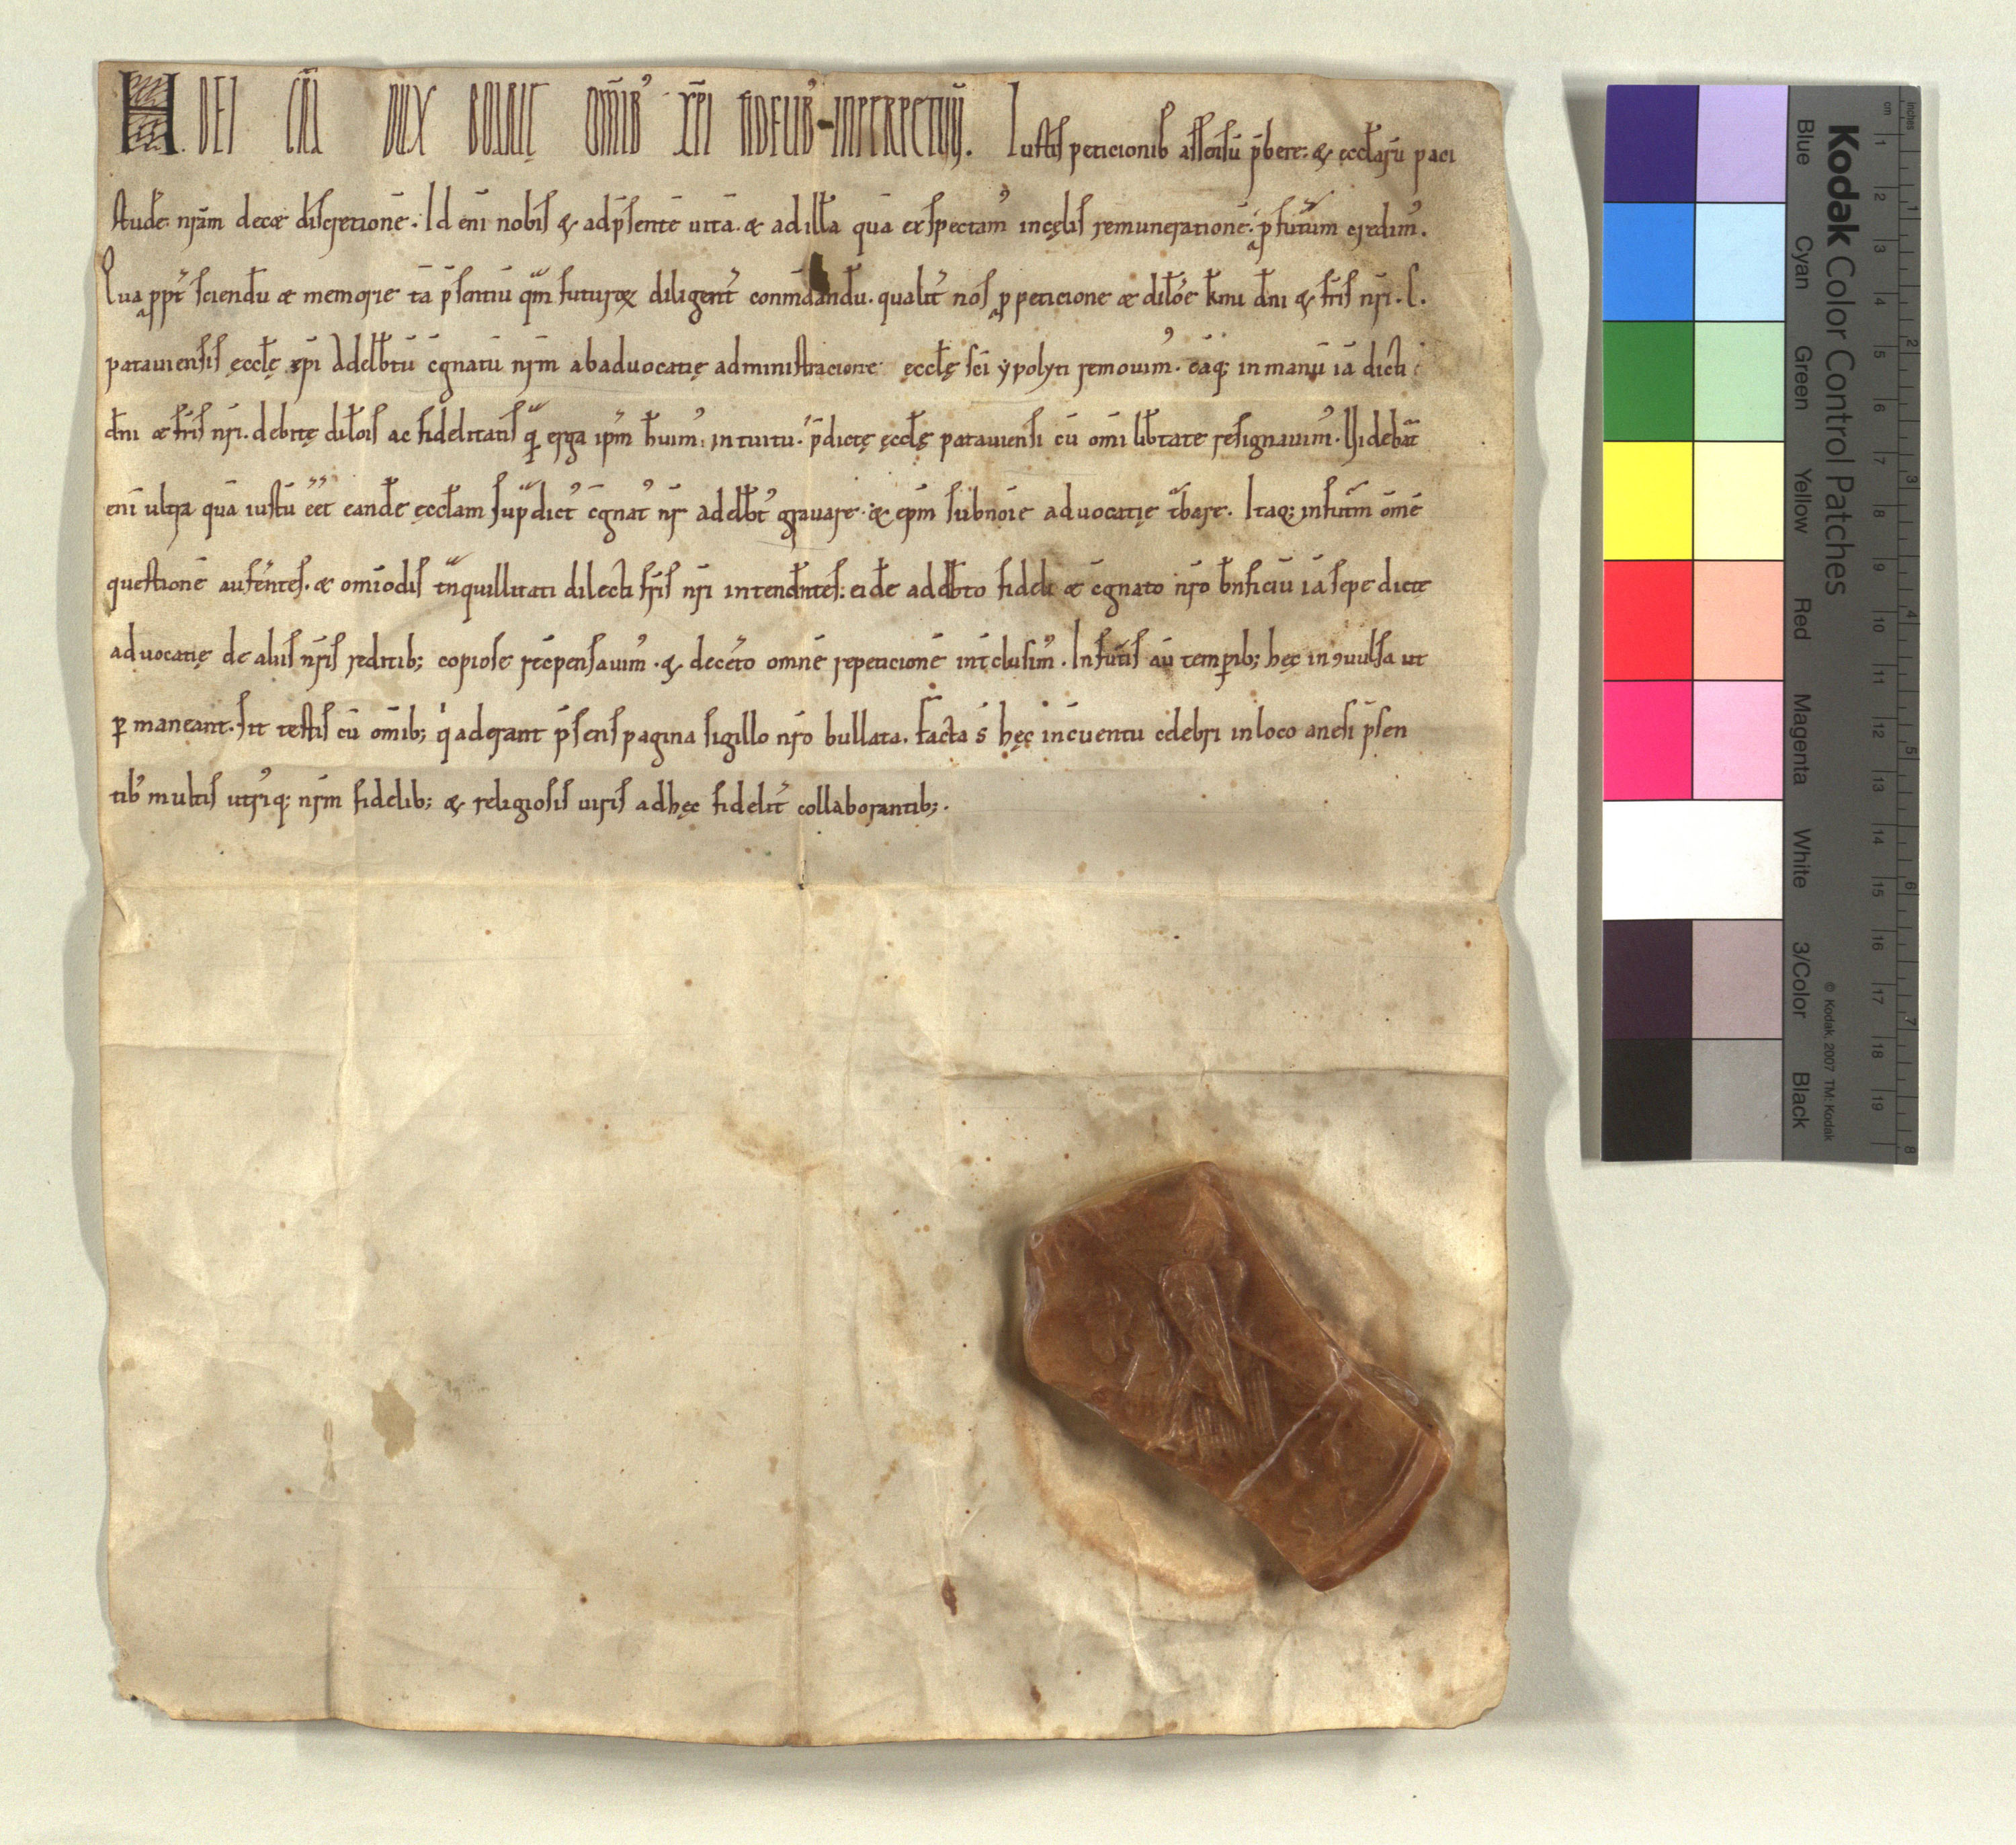 H. DEI GRA DUX BOUUARIE OMIB' XPI FIDELIB' INPERPETUU. Iustis peticionib assensu p̄bere. & ęccłaru paci
studē nr̄am decet discretionē. Id eni nobis & ad p̄sentē uitā. et ad illā quā exspectam' in cęlis remunerationē. p futurum credim'.
Qua ppt̄ sciendū et memorie tā p̄sentiū qm futuroꝝ diligent̄ conmdandū. qualit̄ nos p peticione et dilōe kmi dn̄i & fr̄is nr̄i. C.
patauiensis ęccłę ep̄i Adelbtū c̄gnatū nr̄m ab aduocatię administracione ęccłę sc̄i ypolyti remouim'. eāq; in manū iā dicti
dn̄i et fr̄is nr̄i. debitę dilōis ac fidelitatis quā erga ipm̄ habuim' intuitu. p̄dictę ęccłę patauiensi cū omi libtate resignauim'. Uidebat̄
eni ultra quā iustū eēt eandē ęccłam sup̄dict' c̄gnat' nr̄ adelbt' grauare. & ep̄m sub noīe aduocatię t̄bare. Itaq; in futm̄ om̄ē
questionē auferētes. et omīodis tn̄quillitati dilecti fr̄is nr̄i intendn̄tes. eidē adelbto fideli et c̄gnato nr̄o bn̄ficiū iā sepe dictę
aduocatię de aliis nr̄is reditib; copiose rēcpensauim'. & decet̄o omnē repeticionē int̄clusim'. In futis aū temporib; hęc in ꝯuulsa ut
ꝑmaneant. sit testis cū omib; q̇ aderant p̄sens pagina sigillo nr̄o bullata. facta s̄ hęc in c̄uentu celebri in loco anesi p̄sen
tib' multis utriq; nr̄m fidelib; & religiosis uiris ad hęc fidelit̄ collaborantib;.
Kodak Color Control Patches
Blue Cyan Green Yellow Red Magenta White 3/Color Black
© Kodak, 2007 TM: Kodak
cm 1 2 3 4 5 6 7 8 9 10 11 12 13 14 15 16 17 18 19
Inches 1 2 3 4 5 6 7 8